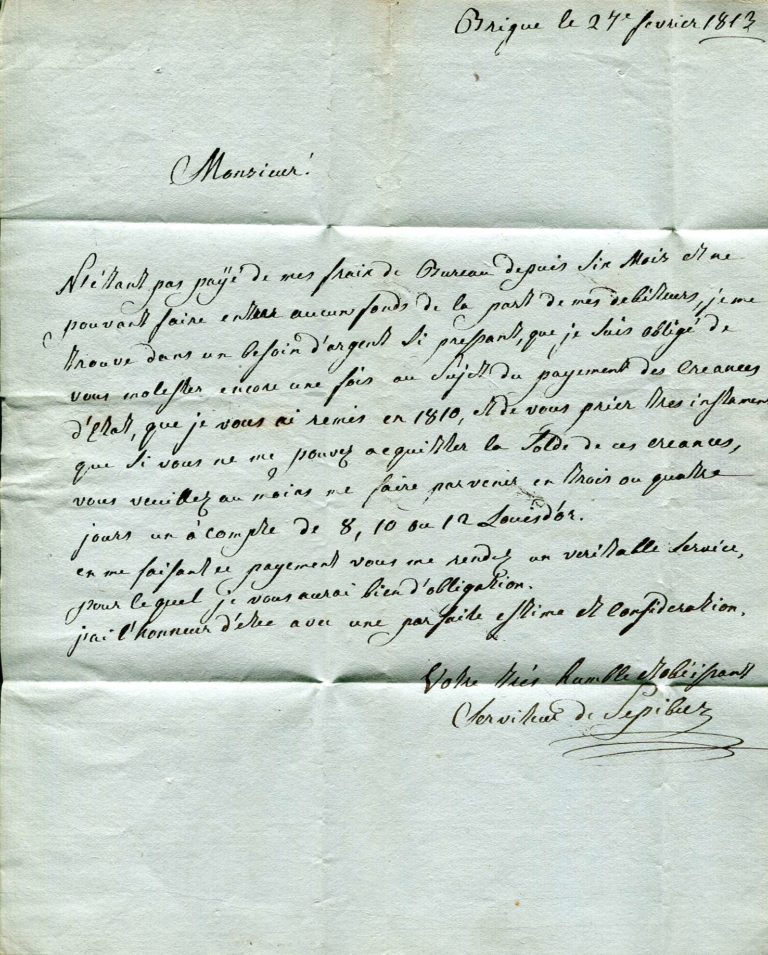 Brigue le 27e fevrier 1813
Monsieur!
N'étant pas payé de mes frais de Bureau depuis Six Mois et ne
pouvant faire entrer aucun fonds de la part de mes debiteurs, je me
trouve dans un besoin d'argent Si pressant, que je Suis obligé de
vous molester encore une fois au Sujet du payement des Creances
d'Etat, que je vous ai remis en 1810, et de vous prier tres instament
que Si vous ne me pouvez acquitter la Solde de ces creances,
vous veuillez au moins me faire parvenir en trois ou quatre
jours un à compte de 8, 10 ou 12 Louisd'or.
en me faisant ce payement vous me rendez un veritable Service,
pour lequel je vous aurai bien d'obligation.
j'ai l'honneur d'etre avec une parfaite estime et Consideration.
Votre trés humble et obéissant
Serviteur de Sepibus